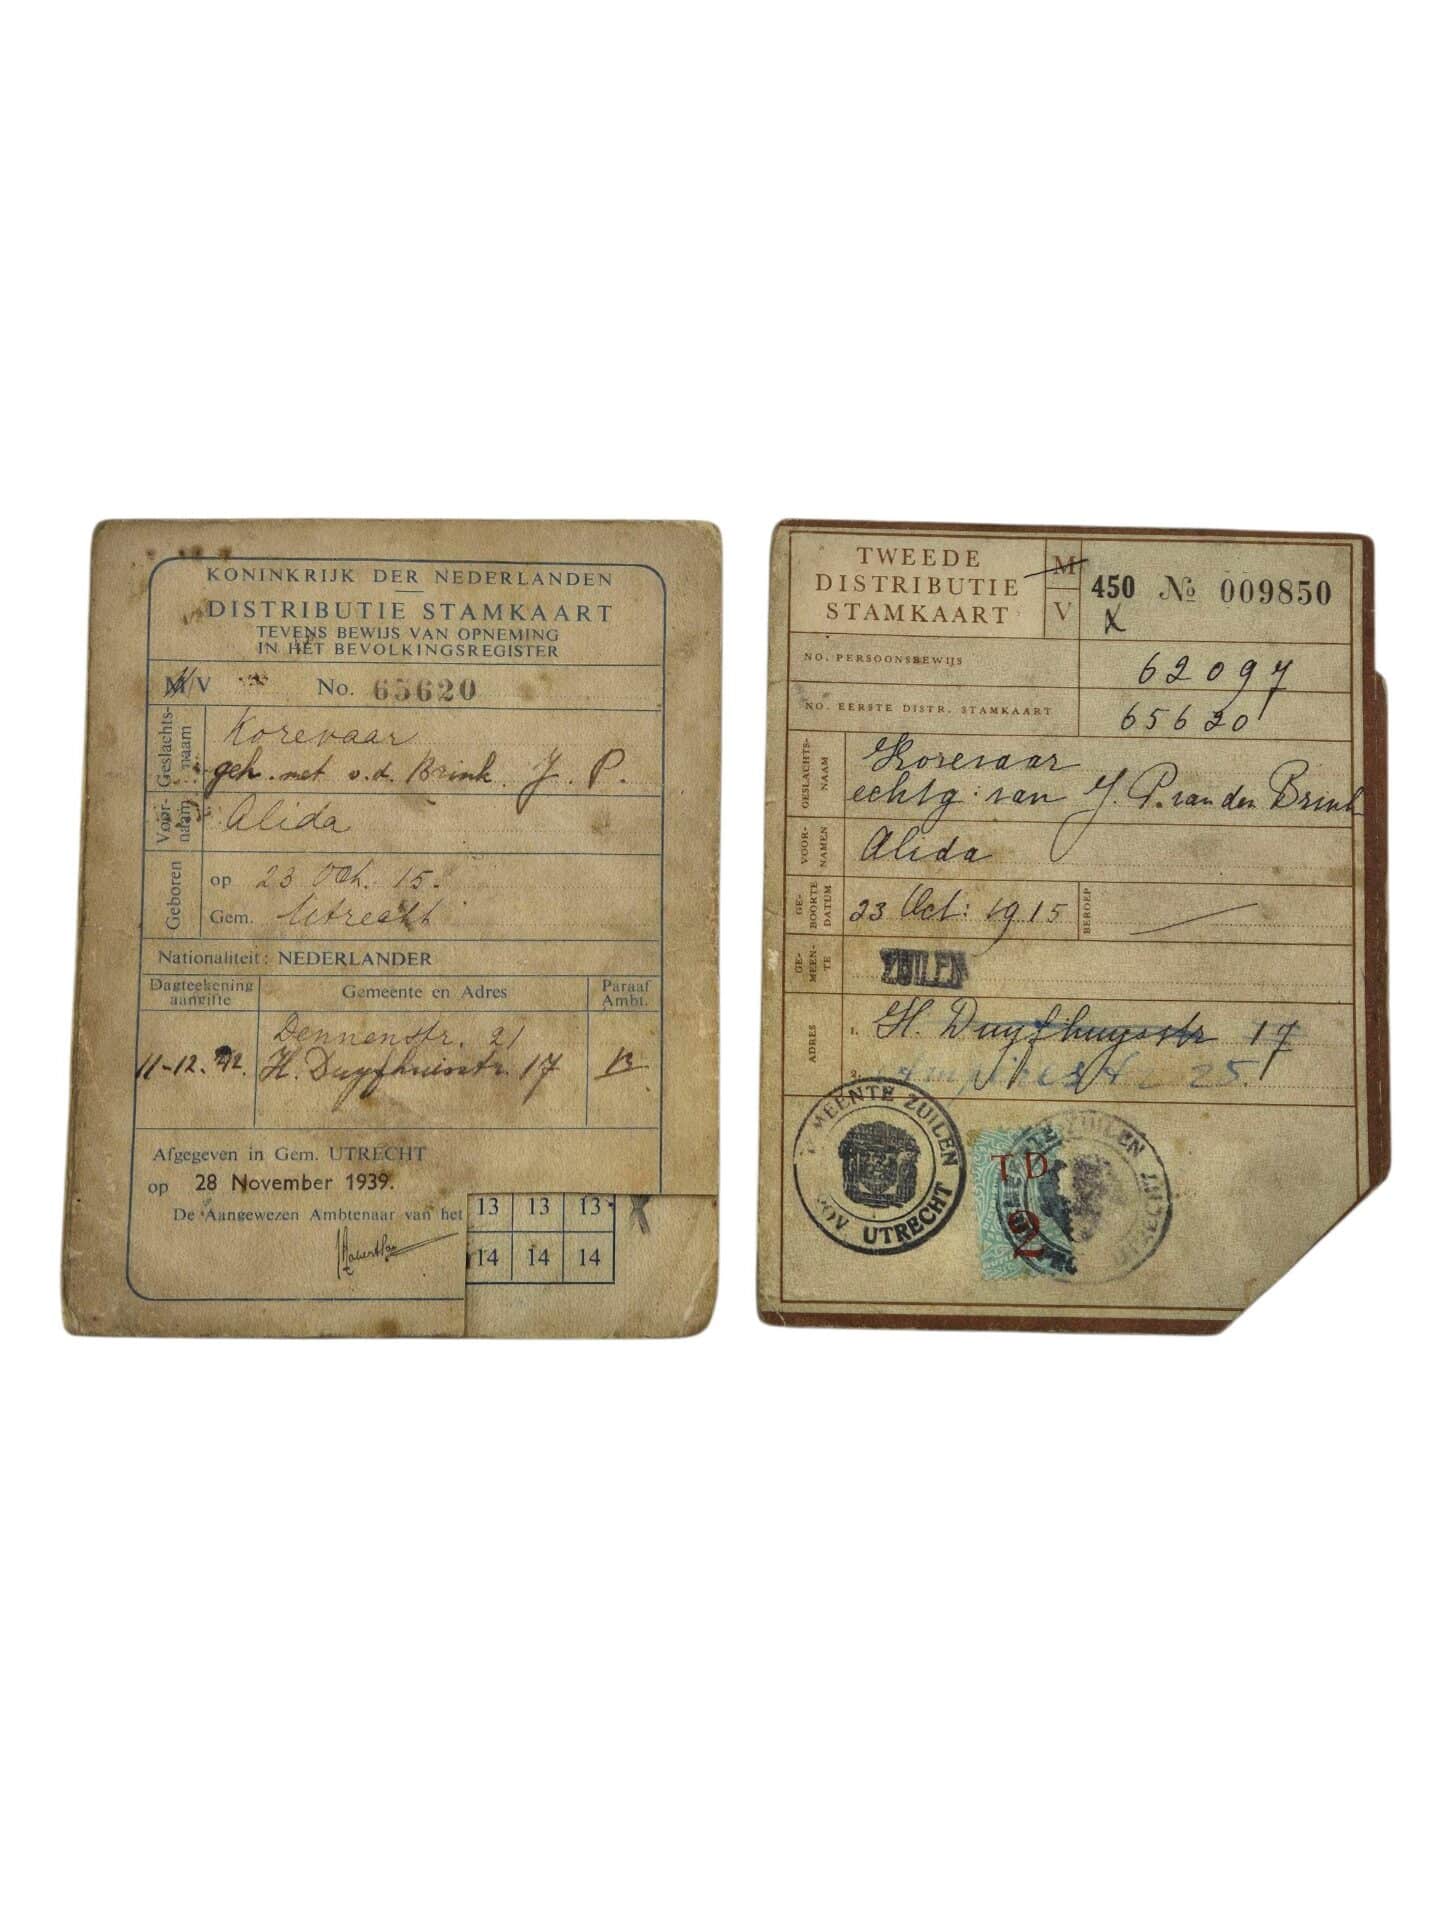 KONINKRIJK DER NEDERLANDEN
DISTRIBUTIE STAMKAART
TEVENS BEWIJS VAN OPNEMING
IN HET BEVOLKINGSREGISTER
M/V No. 65620
Geslachts-naam
Korevaar
geh. met v.d. Brink J. P.
Voor-naam
Alida
Geboren
op 23 Oct. 15.
Gem. Utrecht
Nationaliteit: NEDERLANDER
Dagteekening aangifte
Gemeente en Adres
Paraaf Ambt.
Dennenstr. 21
11-12.42. H. Duyfhuisstr. 17 B
Afgegeven in Gem. UTRECHT
op 28 November 1939.
De Aangewezen Ambtenaar van het
13 13 13 X
14 14 14
TWEEDE
DISTRIBUTIE
STAMKAART
M
V
450 № 009850
X
NO. PERSOONSBEWIJS 62097
NO. EERSTE DISTR. STAMKAART 65620
GESLACHTS-NAAM
Korevaar
echtg: van J. P. van den Brink
VOOR-NAMEN
Alida
GE-BOORTE DATUM
23 Oct: 1915
BEROEP
GE-MEEN-TE
ZUILEN
ADRES
1. H. Duyfhuysstr 17
2. 25.
GEMEENTE ZUILEN
PROV. UTRECHT
TD
2